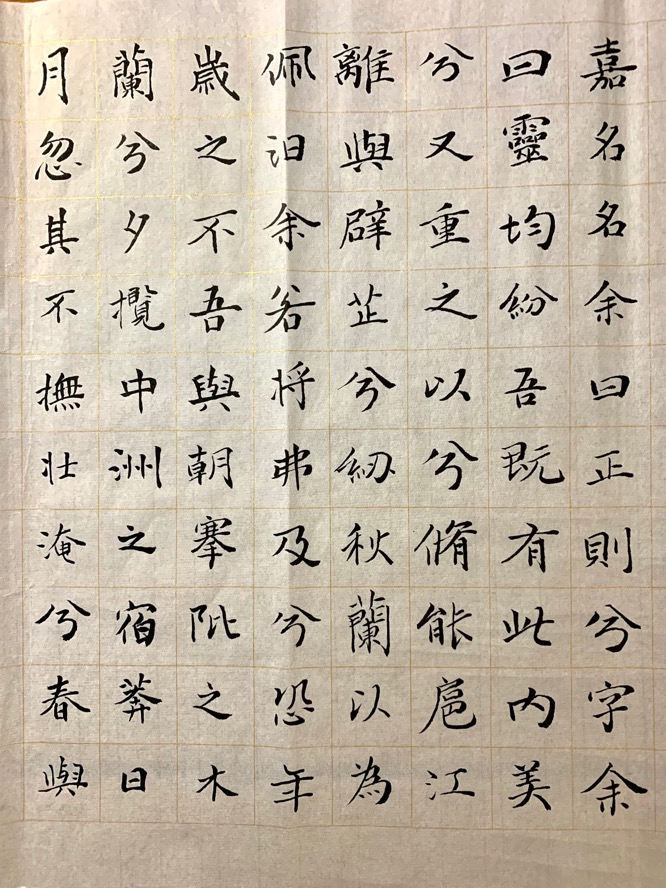 嘉名名余曰正則兮字余
曰靈均紛吾既有此內美
兮又重之以兮脩能扈江
離與辟芷兮紉秋蘭以為
佩汨余若将弗及兮恐年
歲之不吾與朝搴阰之木
蘭兮夕攬中洲之宿莽日
月忽其不撫壯淹兮春與